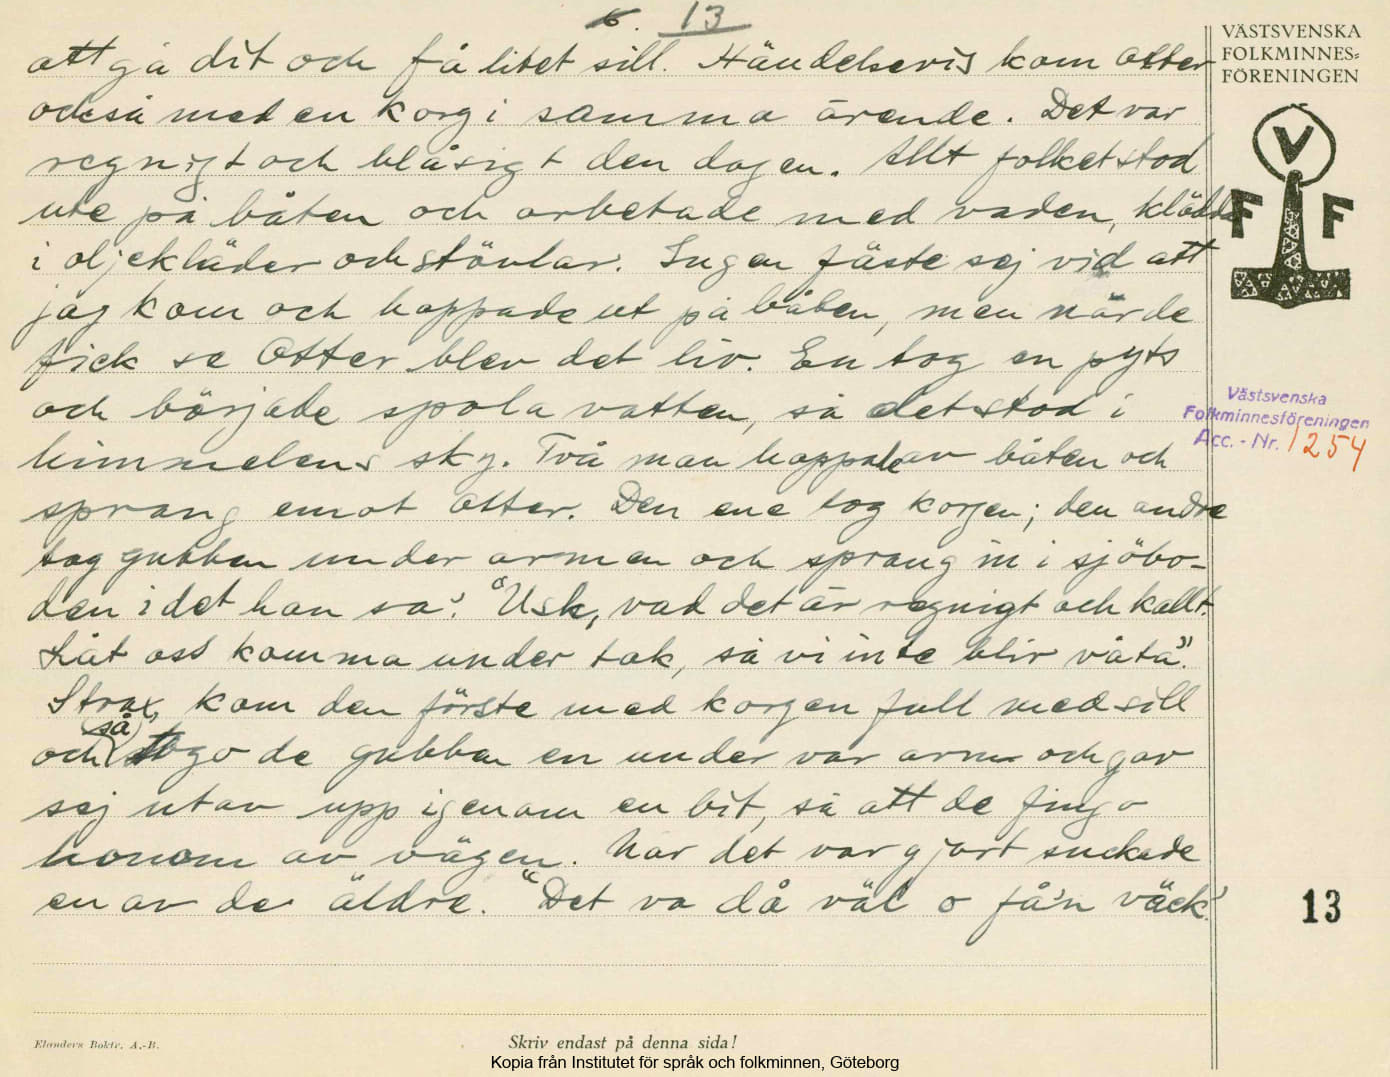 13
att gå dit och få litet sill. Händelsevis kom Otter
också med en korg i samma ärende. Det var
regnigt och blåsigt den dagen. Allt folket stod
ute på båten och arbetade med vaden, klädda
i oljekläder och stövlar. Ingen fäste sej vid att
jag kom och hoppade ut på båten, men när de
fick se Otter blev det liv. En tog en pyts
och började spola vatten, så det stod i
himmelens sky. Två man hoppade av båten och
sprang emot Otter. Den ene tog korgen; den andre
tog gubben under armen och sprang in i sjöbo-
den i det han sa: "Usk, vad det är regnigt och kallt.
Låt oss komma under tak, så vi inte blir våta".
Strax kom den förste med korgen full med sill
och så togo de gubben en under var arm och gav
sej utav upp igenom en bit, så att de fingo
honom av vägen. När det var gjort suckade
en av de äldre. "Det va då väl o få'n väck".
VÄSTSVENSKA
FOLKMINNES=
FÖRENINGEN
V
F F
Västsvenska
Folkminnesföreningen
Acc. - Nr. 1254
13
Elanders Boktr. A.-B.
Skriv endast på denna sida!
Kopia från Institutet för språk och folkminnen, Göteborg